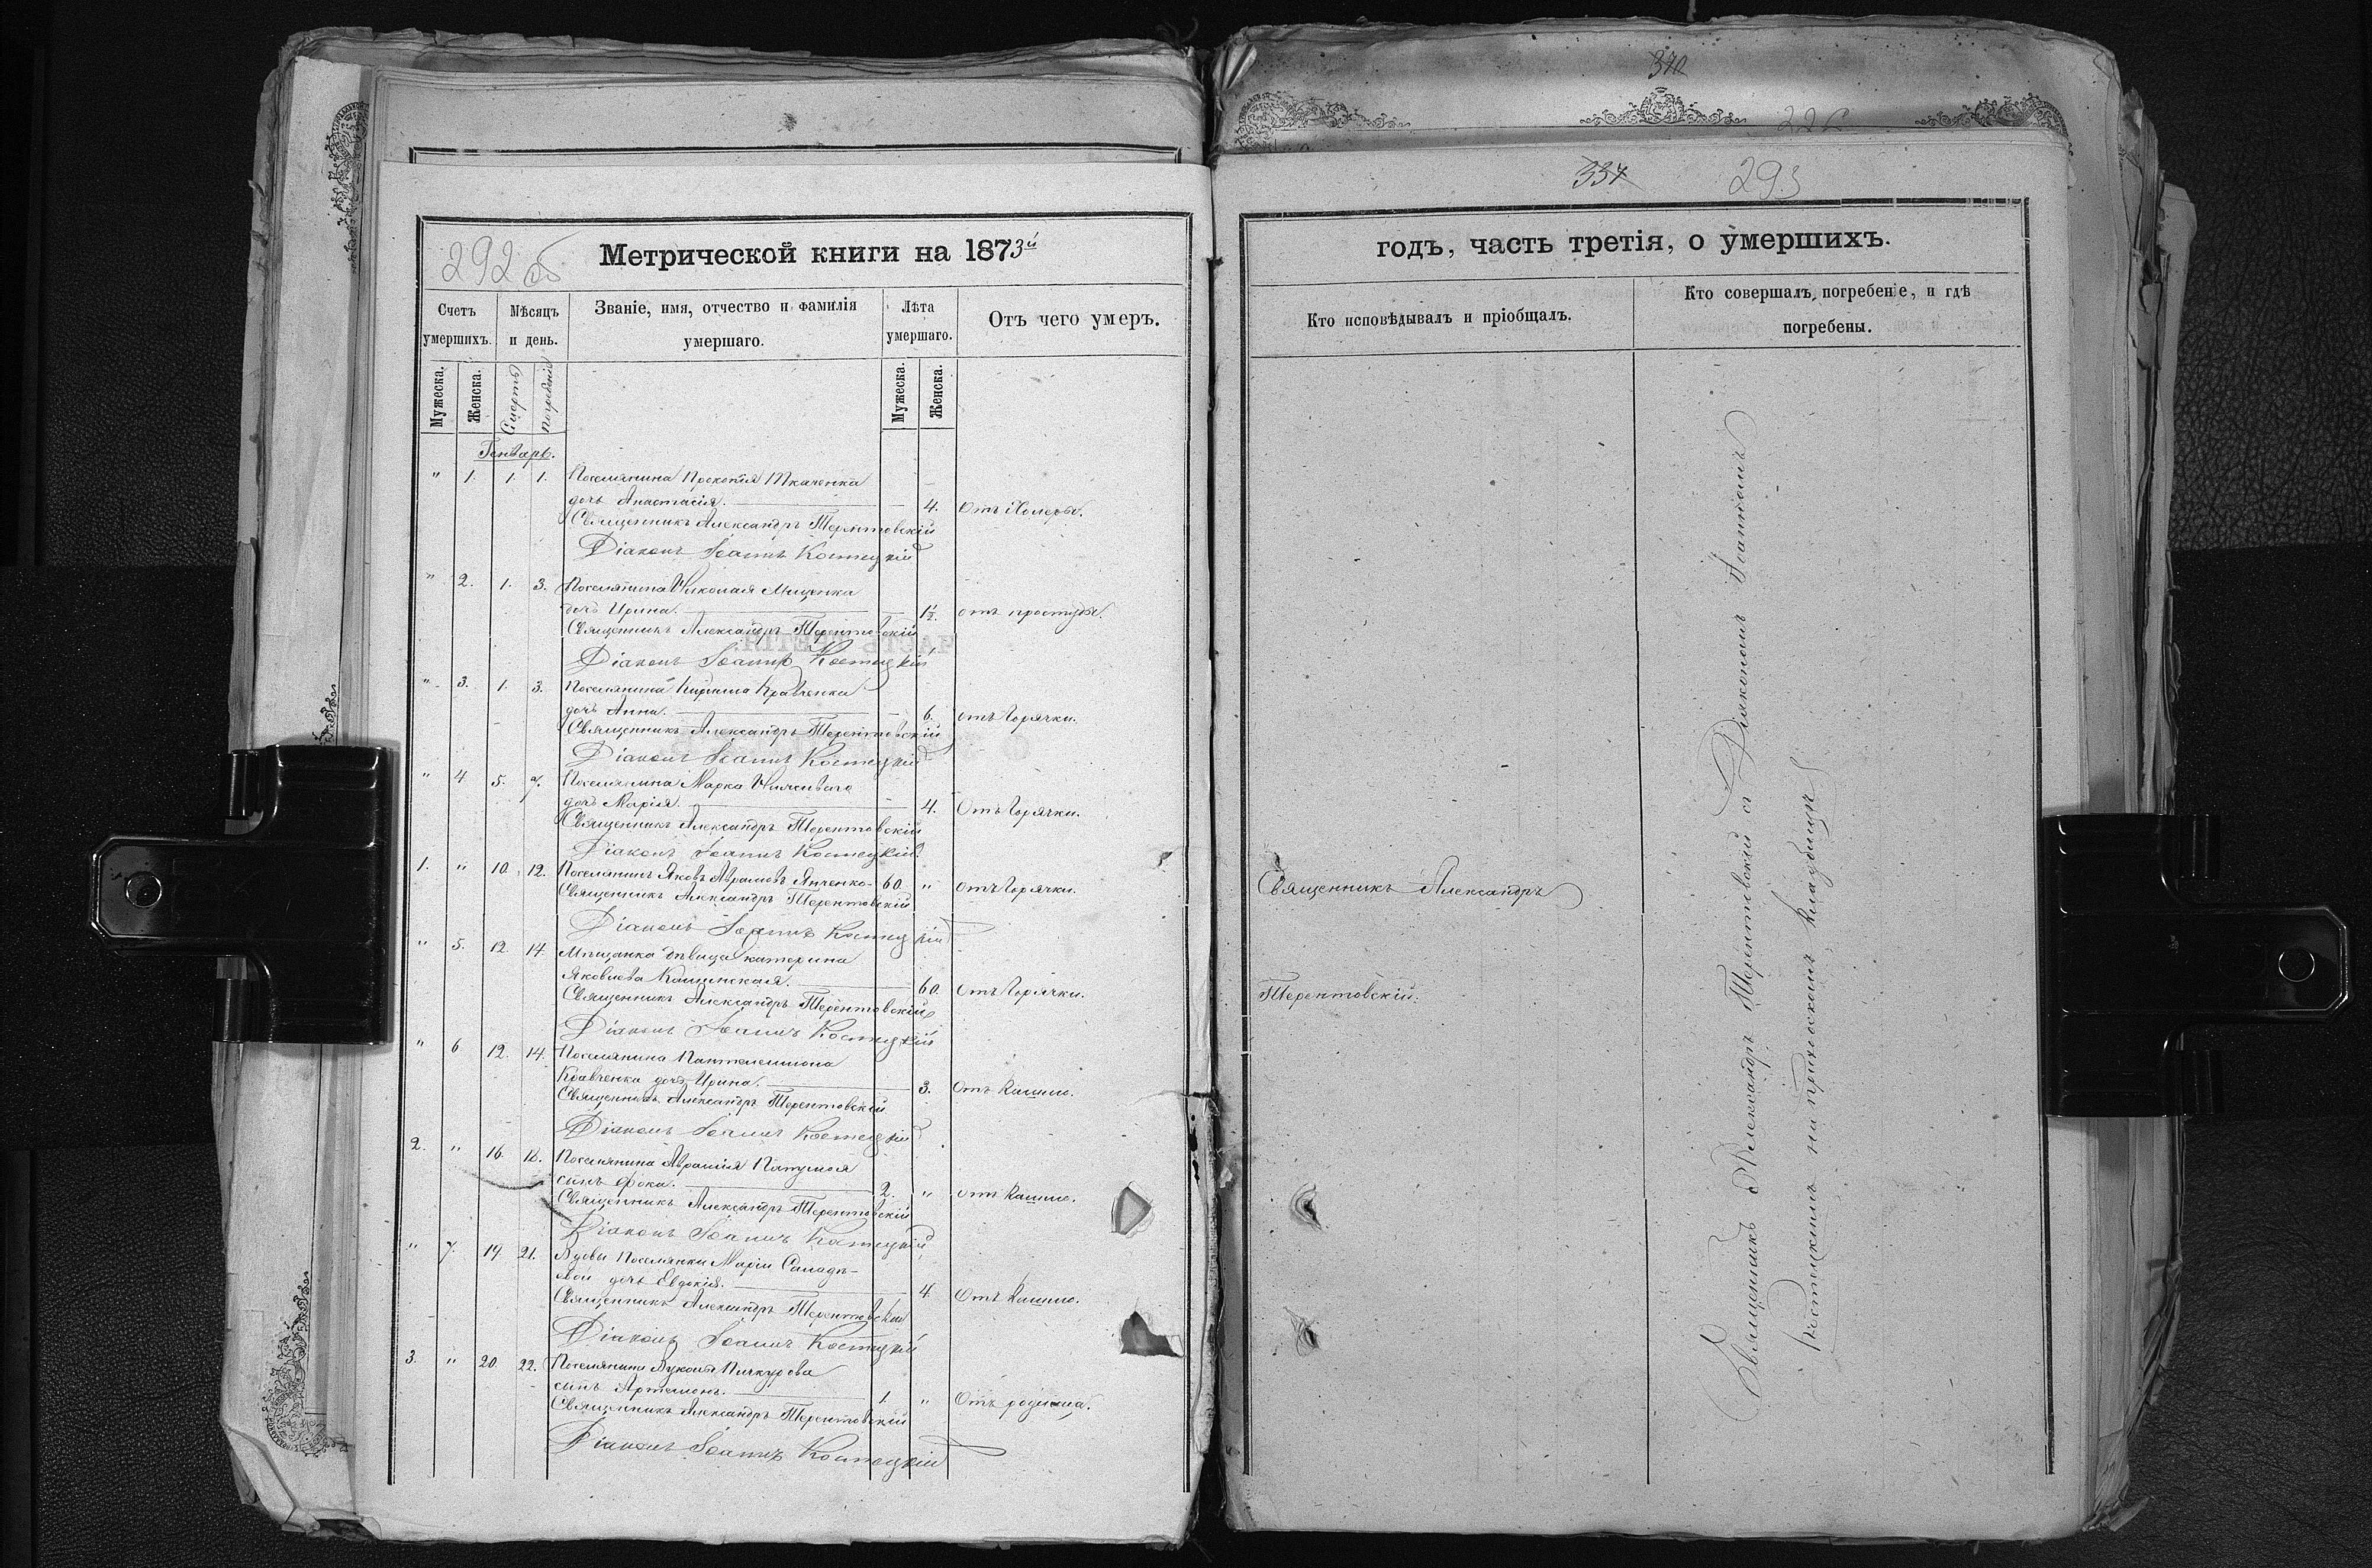 292 об
Метрической книги на 1873й
Счетъ умершихъ.
Мѣсяцъ и день.
Званіе, имя, отчество и фамилія умершаго.
Лѣта умершаго.
Отъ чего умеръ.
Мужеска.
Женска.
Смерть
погребенія
Мужеска.
Женска.
Генварь.
" 1. 1. 1. Поселянина Прокопія Ткаченка
дочь Анастасія. 4. Отъ Холеры.
Священникъ Александръ Терентовскій
Діаконъ Іоаннъ Костецкій
" 2. 1. 3. Поселянина Николая Мищенка
дочь Ирина. 1½. отъ простуды.
Священникъ Александръ Терентовскій
Діаконъ Іоаннъ Костецкій
" 3. 1. 3. Поселянина Кирила Кравченка
дочь Анна. 6. отъ Горячки.
Священникъ Александръ Терентовскій
Діаконъ Іоаннъ Костецкій
" 4. 5. 7. Поселянина Марка
дочь Марія. 4. Отъ Горячки.
Священникъ Александръ Терентовскій
Діаконъ Іоаннъ Костецкій
1. " 10. 12. Поселянинъ Яковъ Аврамовъ Янченко 60 " Отъ Горячки.
Священникъ Александръ Терентовскій
Діаконъ Іоаннъ Костецкій
" 5. 12. 14. Мѣщанка дѣвица Катерина
Яковлева 60. Отъ Горячки.
Священникъ Александръ Терентовскій
Діаконъ Іоаннъ Костецкій
" 6 12. 14. Поселянина Пантелеимона
Кравченка дочь Ирина. 3. Отъ Кашлю.
Священникъ Александръ Терентовскій
Діаконъ Іоаннъ Костецкій
2. " 16. 18. Поселянина Аврамія
сынъ Фока. 2. " Отъ Кашлю.
Священникъ Александръ Терентовскій
Діаконъ Іоаннъ Костецкій
" 7. 19. 21. Вдовы Поселянки Маріи
дочь Евдокія. 4. Отъ Кашлю.
Священникъ Александръ Терентовскій
Діаконъ Іоаннъ Костецкій
3. " 20. 22. Поселянина
сынъ Артемонъ. 1. " Отъ родимца.
Священникъ Александръ Терентовскій
Діаконъ Іоаннъ Костецкій
370
334 293
годъ, часть третія, о умершихъ.
Кто исповѣдывалъ и пріобщалъ.
Кто совершалъ погребеніе, и гдѣ погребены.
Священникъ Александръ
Терентовскій.
Священникъ Александръ Терентовскій съ Діакономъ Іоанномъ
Костецкимъ на приходскомъ кладбищѣ